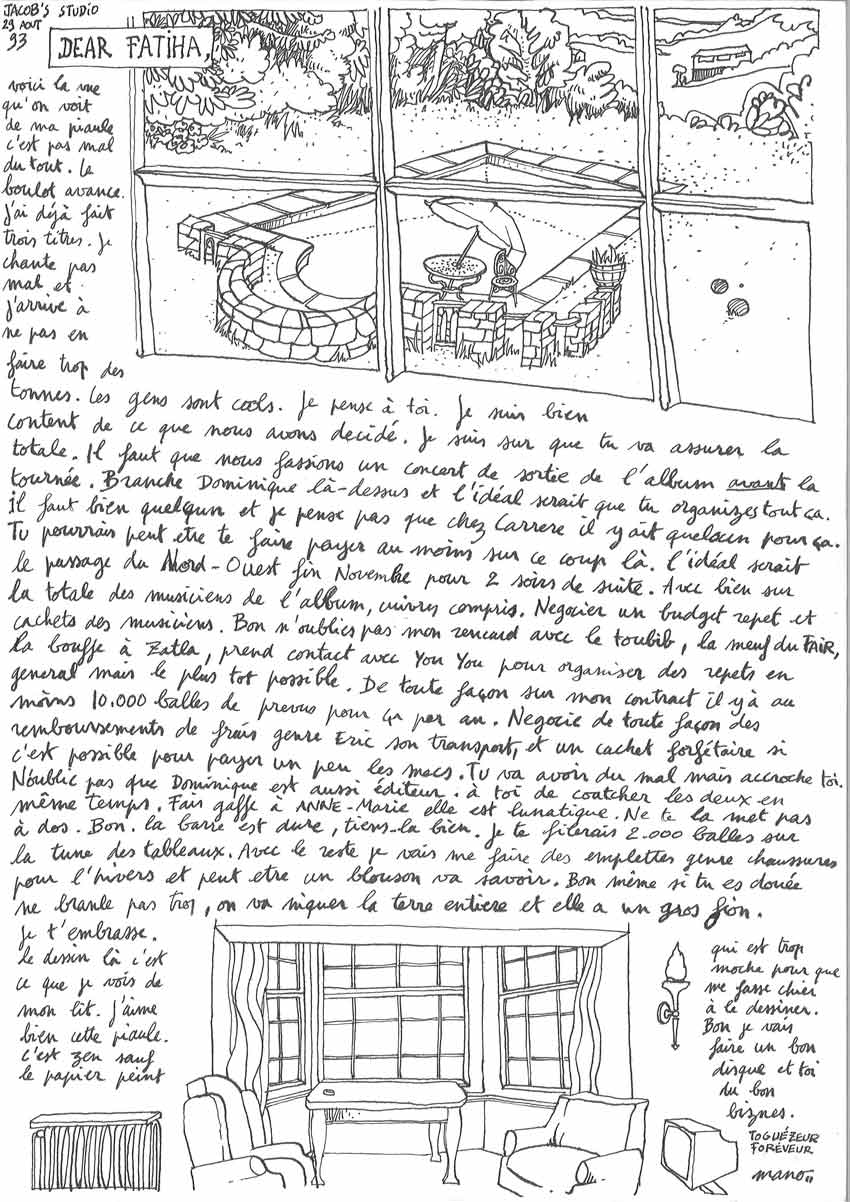 JACOB'S STUDIO
29 AOUT
93
DEAR FATIHA,
voici la vue
qu'on voit
de ma piaule
c'est pas mal
du tout. Le
boulot avance.
J'ai déjà fait
trois titres. Je
chante pas
mal et
j'arrive à
ne pas en
faire trop des
tonnes. Les gens sont cools. Je pense à toi. Je suis bien
content de ce que nous avons decidé. Je suis sur que tu va assurer la
totale. Il faut que nous fassions un concert de sortie de l'album avant la
tournée. Branche Dominique là-dessus et l'idéal serait que tu organizes tout ça.
Il faut bien quelqun et je pense pas que chez Carrere il y ait quelqun pour ça.
Tu pourrais peut etre te faire payer au moins sur ce coup là. l'idéal serait
le passage du Nord-Ouest fin Novembre pour 2 soirs de suite. Avec bien sur
la totale des musiciens de l'album, cuivres compris. Negocier un budget repet et
cachets des musiciens. Bon n'oublies pas mon rencard avec le toubib, la meuf du FAIR,
la bouffe à Zatla, prend contact avec You You pour organiser des repets en
general mais le plus tot possible. De toute façon sur mon contract il y à au
moins 10.000 balles de prevus pour ça par an. Negocie de toute façon des
remboursements de frais genre Eric son transport, et un cachet forfétaire si
c'est possible pour payer un peu les mecs. Tu va avoir du mal mais accroche toi.
N'oublie pas que Dominique est aussi éditeur. à toi de coatcher les deux en
même temps. Fais gaffe à ANNE-Marie elle est lunatique. Ne te la met pas
à dos. Bon. la barre est dure, tiens-la bien. Je te filerais 2.000 balles sur
la tune des tableaux. Avec le reste je vais me faire des emplettes genre chaussures
pour l'hivers et peut etre un blouson va savoir. Bon même si tu es douée
ne branle pas trop, on va niquer la terre entiere et elle a un gros fion.
Je t'embrasse.
le dessin là c'est
ce que je vois de
mon lit. J'aime
bien cette piaule.
C'est zen sauf
le papier peint
qui est trop
moche pour que
me fasse chier
à le dessiner.
Bon je vais
faire un bon
disque et toi
du bon
biznes.
TOGUÉZEUR
FORÉVEUR
mano